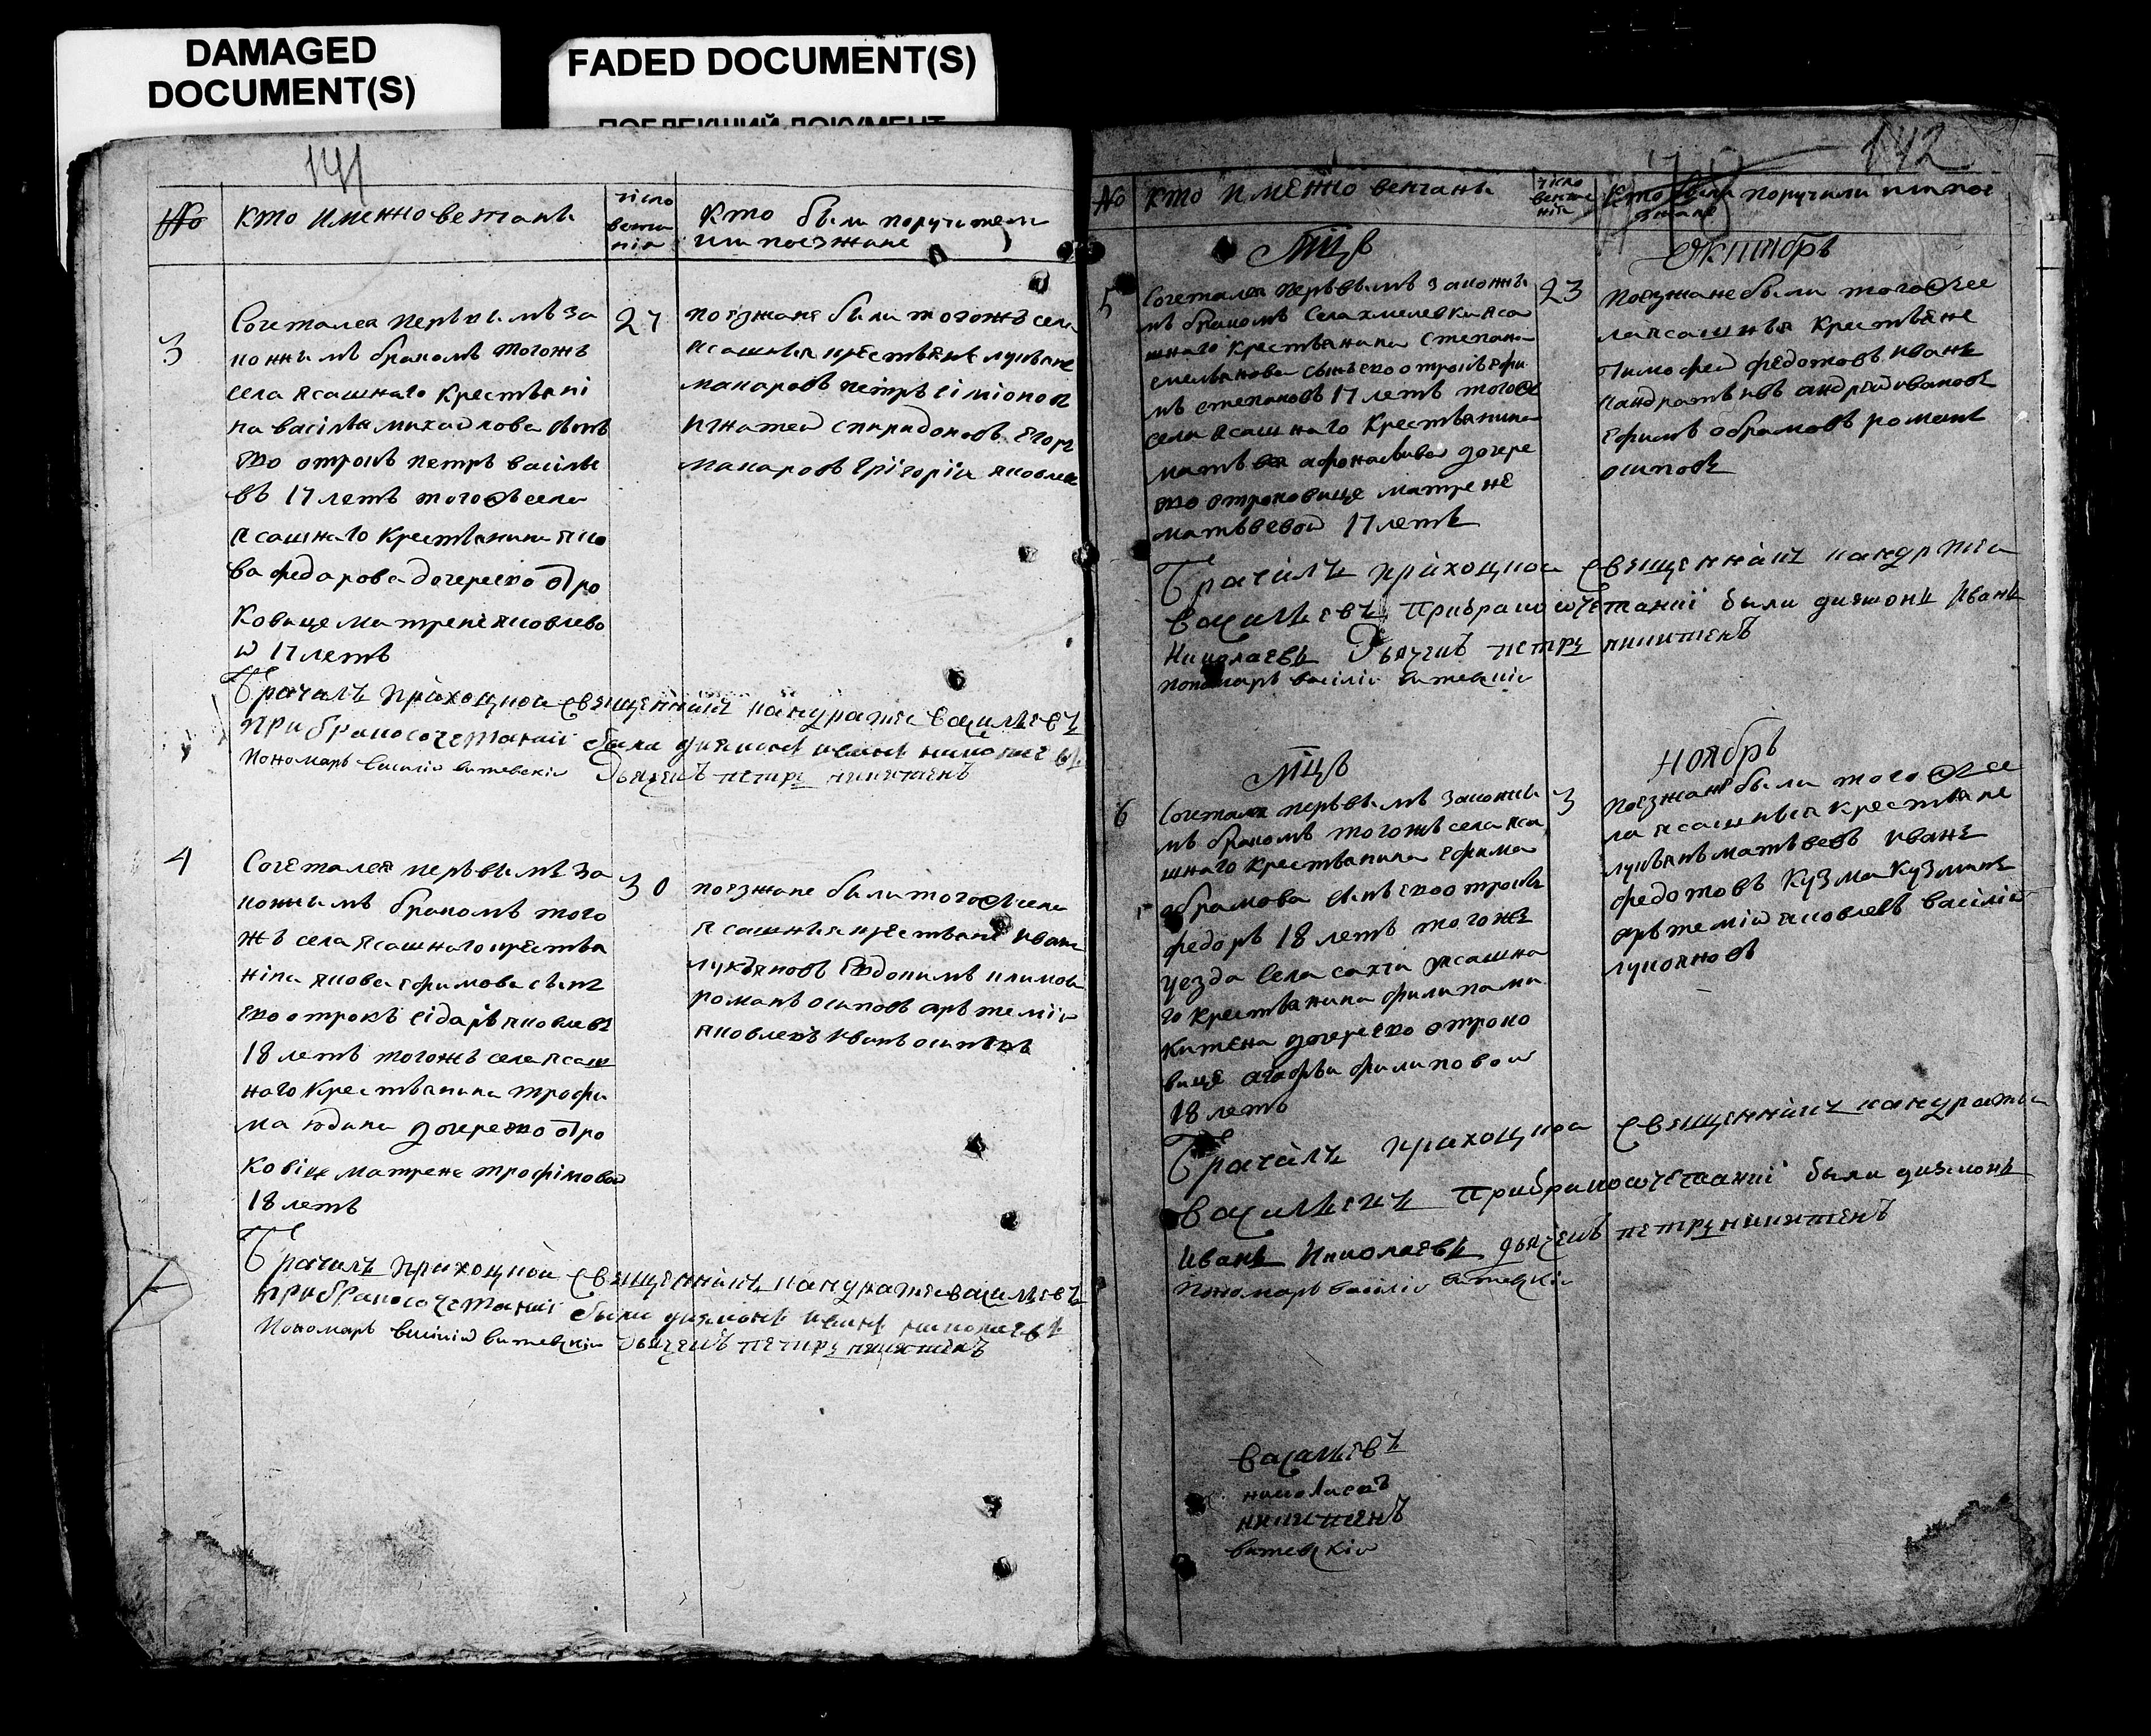 DAMAGED
DOCUMENT(S)
FADED DOCUMENT(S)
ПОБЛЕКШИЙ ДОКУМЕНТ
141
№ кто имежно венчаны
число венча ния
кто были поручители
или поезжане
3
Сочетался первымъ за
конымъ бракомъ тогожъ
села ясашнаго крестьяни
на василья михаилова сынъ
ево отрокъ петръ василье
въ 17 летъ тогожъ села
ясашнаго крестьянина яко
ва федорова дочерею отро
ковицею матреней яковлево
й 17 летъ
27
поезжаня были тогожъ села
ясашныя крестьяне лукьяне
макаровъ петръ симионов
игнатей спиридоновъ егоръ
макаровъ григорiи яковлев
Брачилъ приходной священникъ кандратей васильевъ
при бракосочетании были дияконъ иванъ николаевъ
Пономарь василiй витевскiй дьячекъ петръ никитенъ
4
Сочетался первымъ за
конымъ бракомъ того
жъ села ясашнаго крестья
нiна якова ефимова сынъ
ево отрокъ сiдаръ яковлевъ
18 летъ тогожъ села ясаш
наго крестьянина трофи
ма юдина дочерею отро
ковiце матрене трофiмовой
18 летъ
30
поезжане были тогожъ села
ясашныя крестьяне иванъ
лукьяновъ климов
романъ осиповъ артемiй
яковлевъ иванъ осиповъ
Брачилъ приходной священникъ кандратей васильевъ
при бракосочетании были дияконъ иванъ николаевъ
Пономарь василiй витевскiй дьячекъ петръ никитенъ
142
№ кто имЕжно венчаны
число венча нiя
кто были поручили или пое
зжане
Мцъ Октябрь
5
Сочетался первымъ законы
мъ бракомъ села хмелевки яса
шнаго крестьянина степана
емельянова сынъ ево отрокъ ефи
мъ степановъ 17 летъ тогожъ
села ясашнаго крестьянина
матвея афонасьева дочере
ю отроковице матрене
матвевой 17 летъ
23
Поезжане были тогожъ се
ла ясашныя крестьяне
Тимофей федотовъ иванъ
кандратьевъ андрей ивановъ
ефимъ абрамовъ романъ
осиповъ
Брачилъ приходной священникъ кандратей
васильевъ при бракосочетанiи были дияконъ иванъ
Николаевъ Дьячекъ петръ никитенъ
пономарь василiй витевскiй
Мцъ Ноябрь
6
Сочетался первымъ законы
мъ бракомъ тогожъ села яса
шнаго крестьянина ефима
абрамова сынъ ево отрокъ
федоръ 18 летъ тогожъ
уезда села ясашна
го крестьянина филипа ми
китена дочерею отроко
вице агафьи филиповой
18 летъ
3
Поезжане были тогожъ се
ла ясашныя крестьяне
лукьянъ матвеевъ иванъ
федотовъ кузма кузминъ
артемiй яковлевъ василiй
лукояновъ
Брачилъ приходной священникъ кандратей
васильевъ при бракосочетанiи были дияконъ
иванъ Николаевъ дьячекъ петръ никитенъ
Пономарь василiй витевскiй
васильевъ
николаевъ
никитенъ
витевскiй